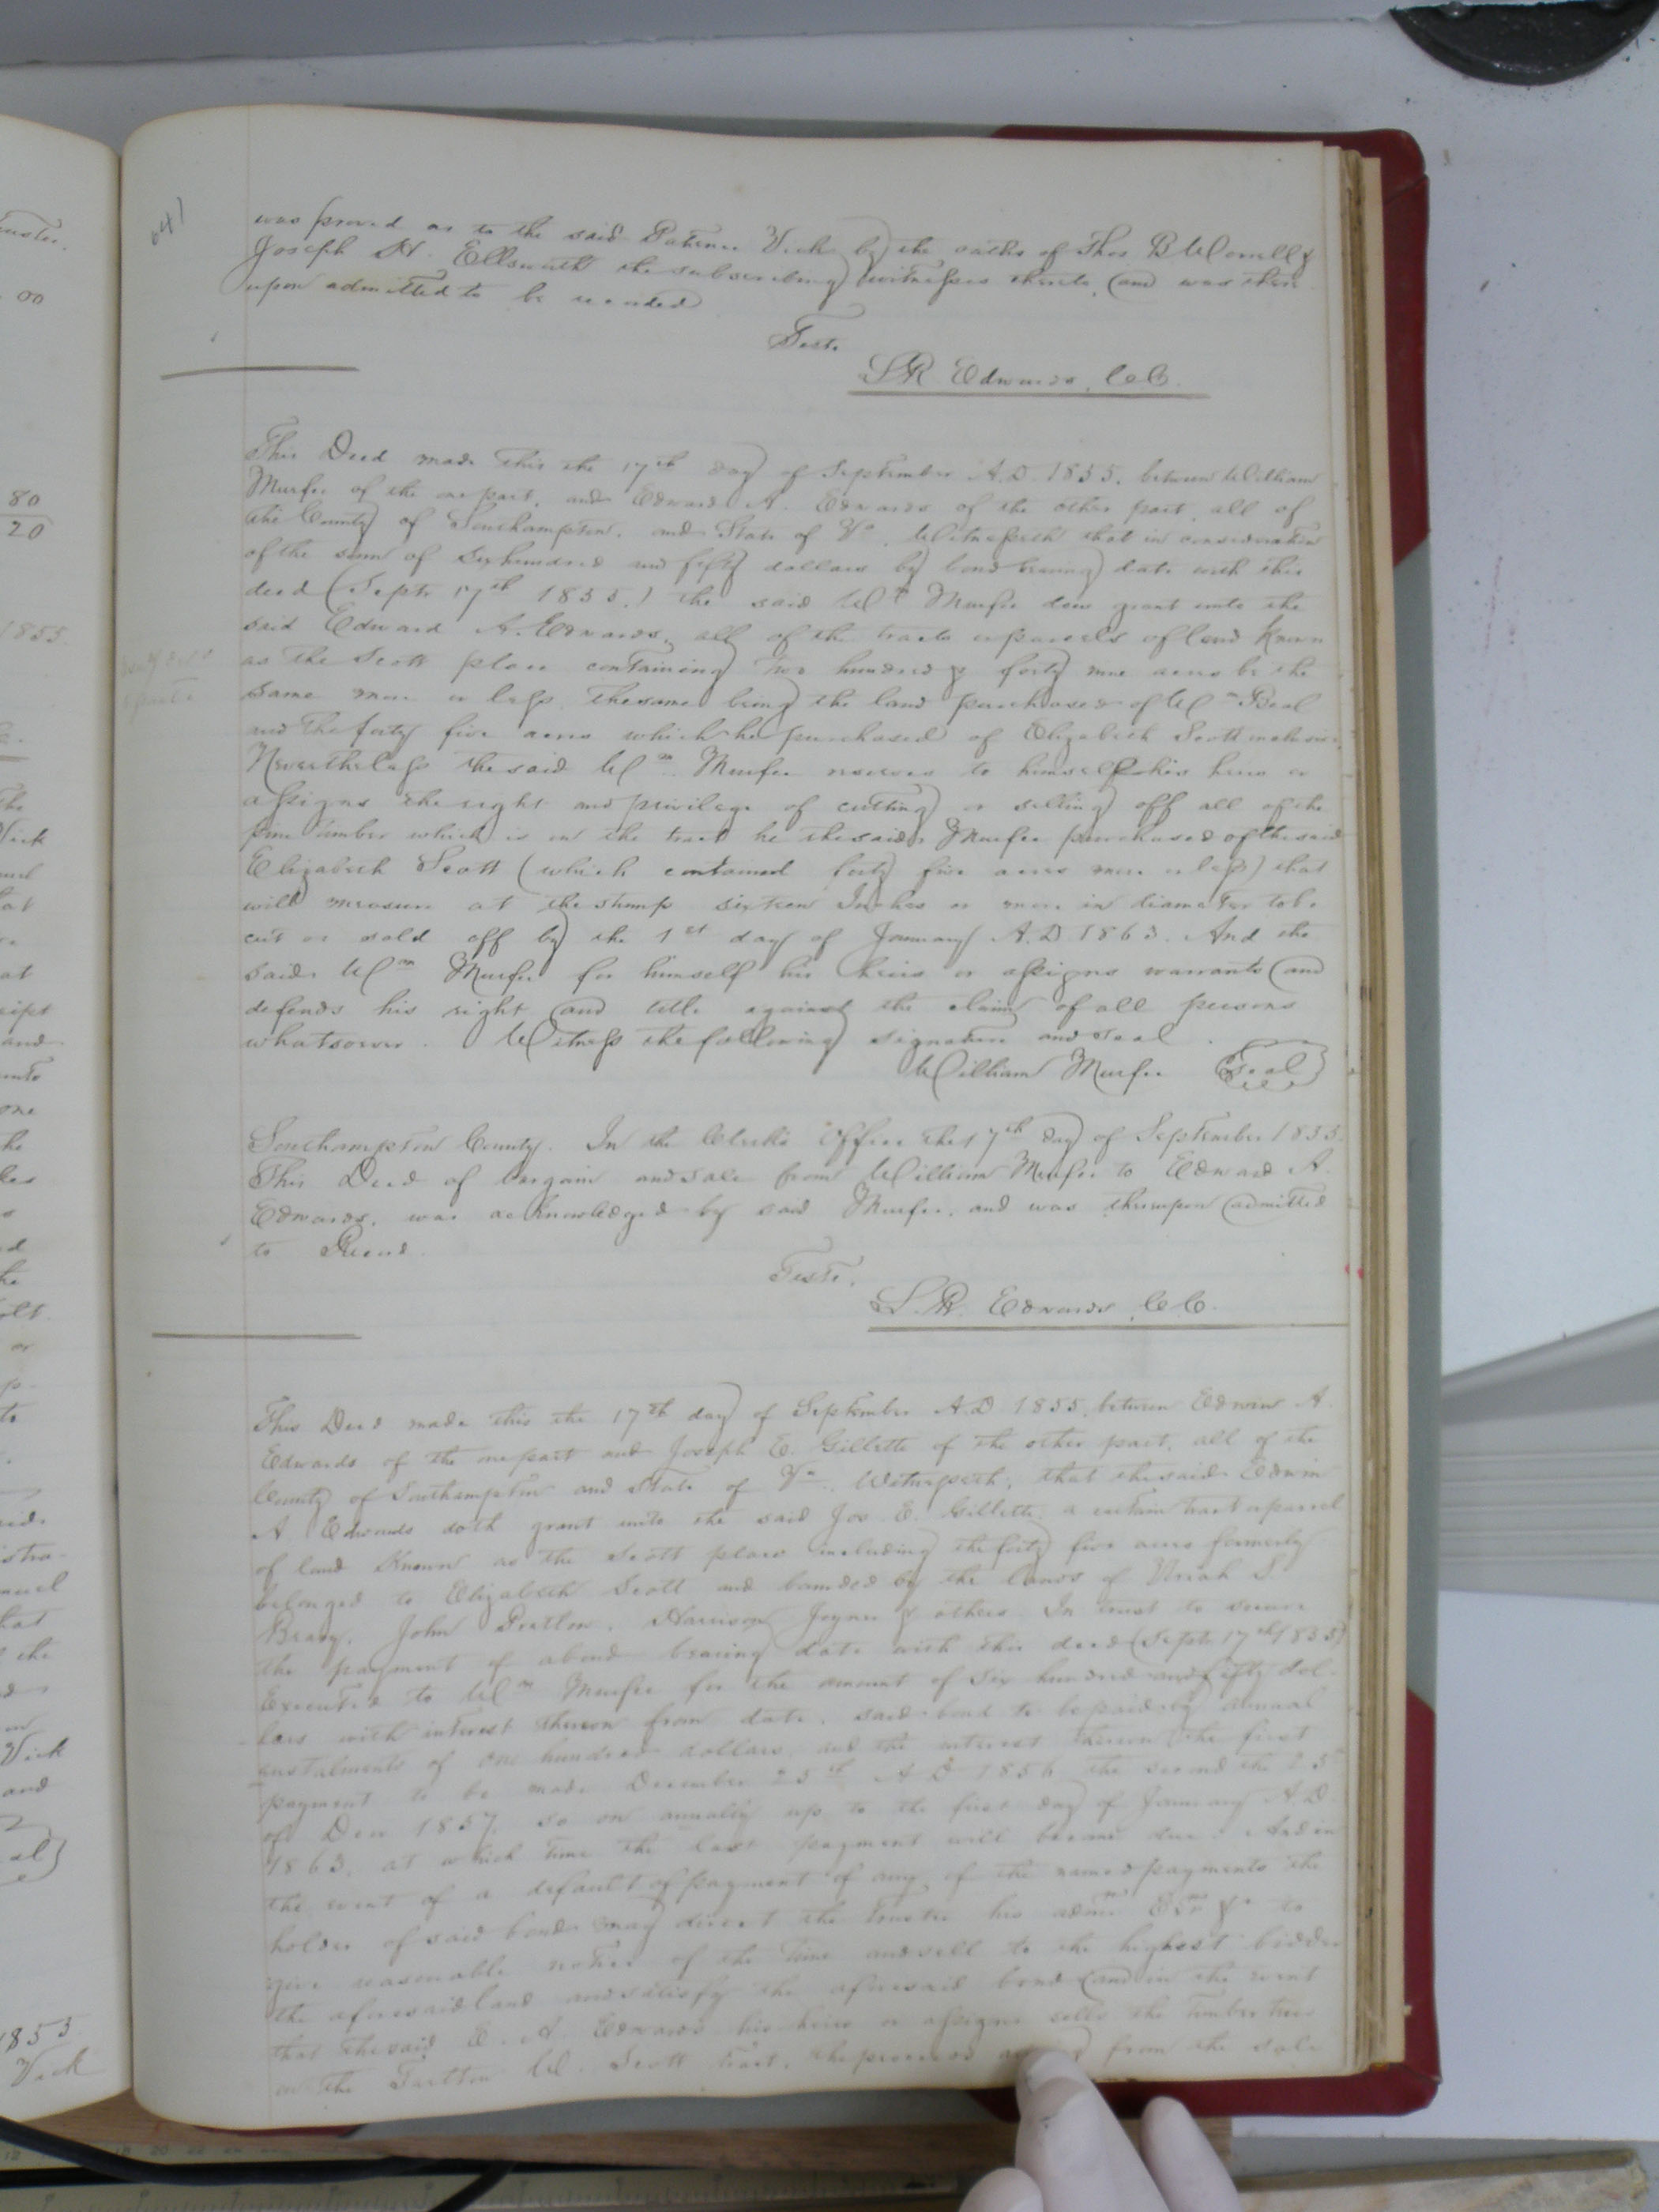 641
was proved as to the said Patience Vick by the oaths of Thos. B Worrell &
Joseph H. Ellsworth the subscribing witnesses thereto, and was there
upon admitted to be recorded
Teste.
L R Edwards, C C.
This Deed made this the 17th day of September A.D. 1855, between William
Murfee of the one part, and Edward A. Edwards of the other part, all of
the County of Southampton, and State of Va. Witnesseth that in consideration
of the sum of six hundred and fifty dollars by bond bearing date with this
deed (Septr 17th 1855.) the said Wm Murfee does grant unto the
said Edward A. Edwards, all of the tracts or parcels of land known
as the Scott place containing two hundred & forty nine acres be the
same more or less the same being the land purchased of Wm Beal
and the forty five acres which he purchased of Elizabeth Scott inclusive.
Nevertheless the said Wm Murfee reserves to himself his heirs or
assigns the right and privilege of cutting or selling off all of the
pine timber which is on the tract he the said Murfee purchased of the said
Elizabeth Scott (which contained forty five acres more or less) that
will measure at the stump sixteen Inches or more in diameter to be
cut or sold off by the 1st day of January A.D. 1863. And the
said Wm Murfee for himself his heirs or assigns warrants and
defends his right and title against the claim of all persons
whatsoever. Witness the following signature and seal.
William Murfee Seal
Southampton County. In the Clerk's Office the 17th day of September 1855.
This Deed of bargain and sale from William Murfee to Edward A.
Edwards, was acknowledged by said Murfee, and was thereupon admitted
to Record.
Teste.
L. R. Edwards, C C.
This Deed made this the 17th day of September A.D. 1855, between Edwin A.
Edwards of the one part and Joseph E. Gillette of the other part, all of the
County of Southampton and State of Va. Witnesseth, that the said Edwin
A Edwards doth grant unto the said Jos E. Gillette, a certain tract or parcel
of land known as the Scott place including the forty five acres formerly
belonged to Elizabeth Scott and bounded by the lands of Uriah S.
John Harrison Joyner & others. In trust to secure
the payment of a bond bearing date with this deed (Septr 17th 1855)
Executed to Wm Murfee for the amount of six hundred and fifty dol-
lars with interest thereon from date, said bond to be paid by annual
instalments of one hundred dollars, and the interest thereon the first
payment to be made December 25th A D 1856 the second the 25
of Dec 1857, so on annually up to the first day of January A.D.
1863, at which time the last payment will become due. And in
the event of a default of payment of any of the named payments the
holder of said bond may direct the trustee his admr Exr &c to
give reasonable notice of the time and sell to the highest bidder
the aforesaid land and satisfy the aforesaid bond and in the event
that the said E. A. Edwards his heirs or assigns sells the timber trees
on the W. Scott tract, the proceeds from the sale